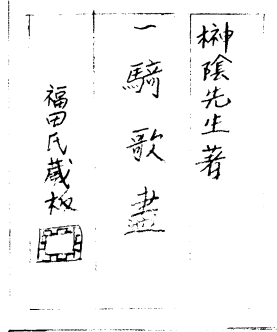 榊陰先生著
一騎歌盡
福田氏蔵板